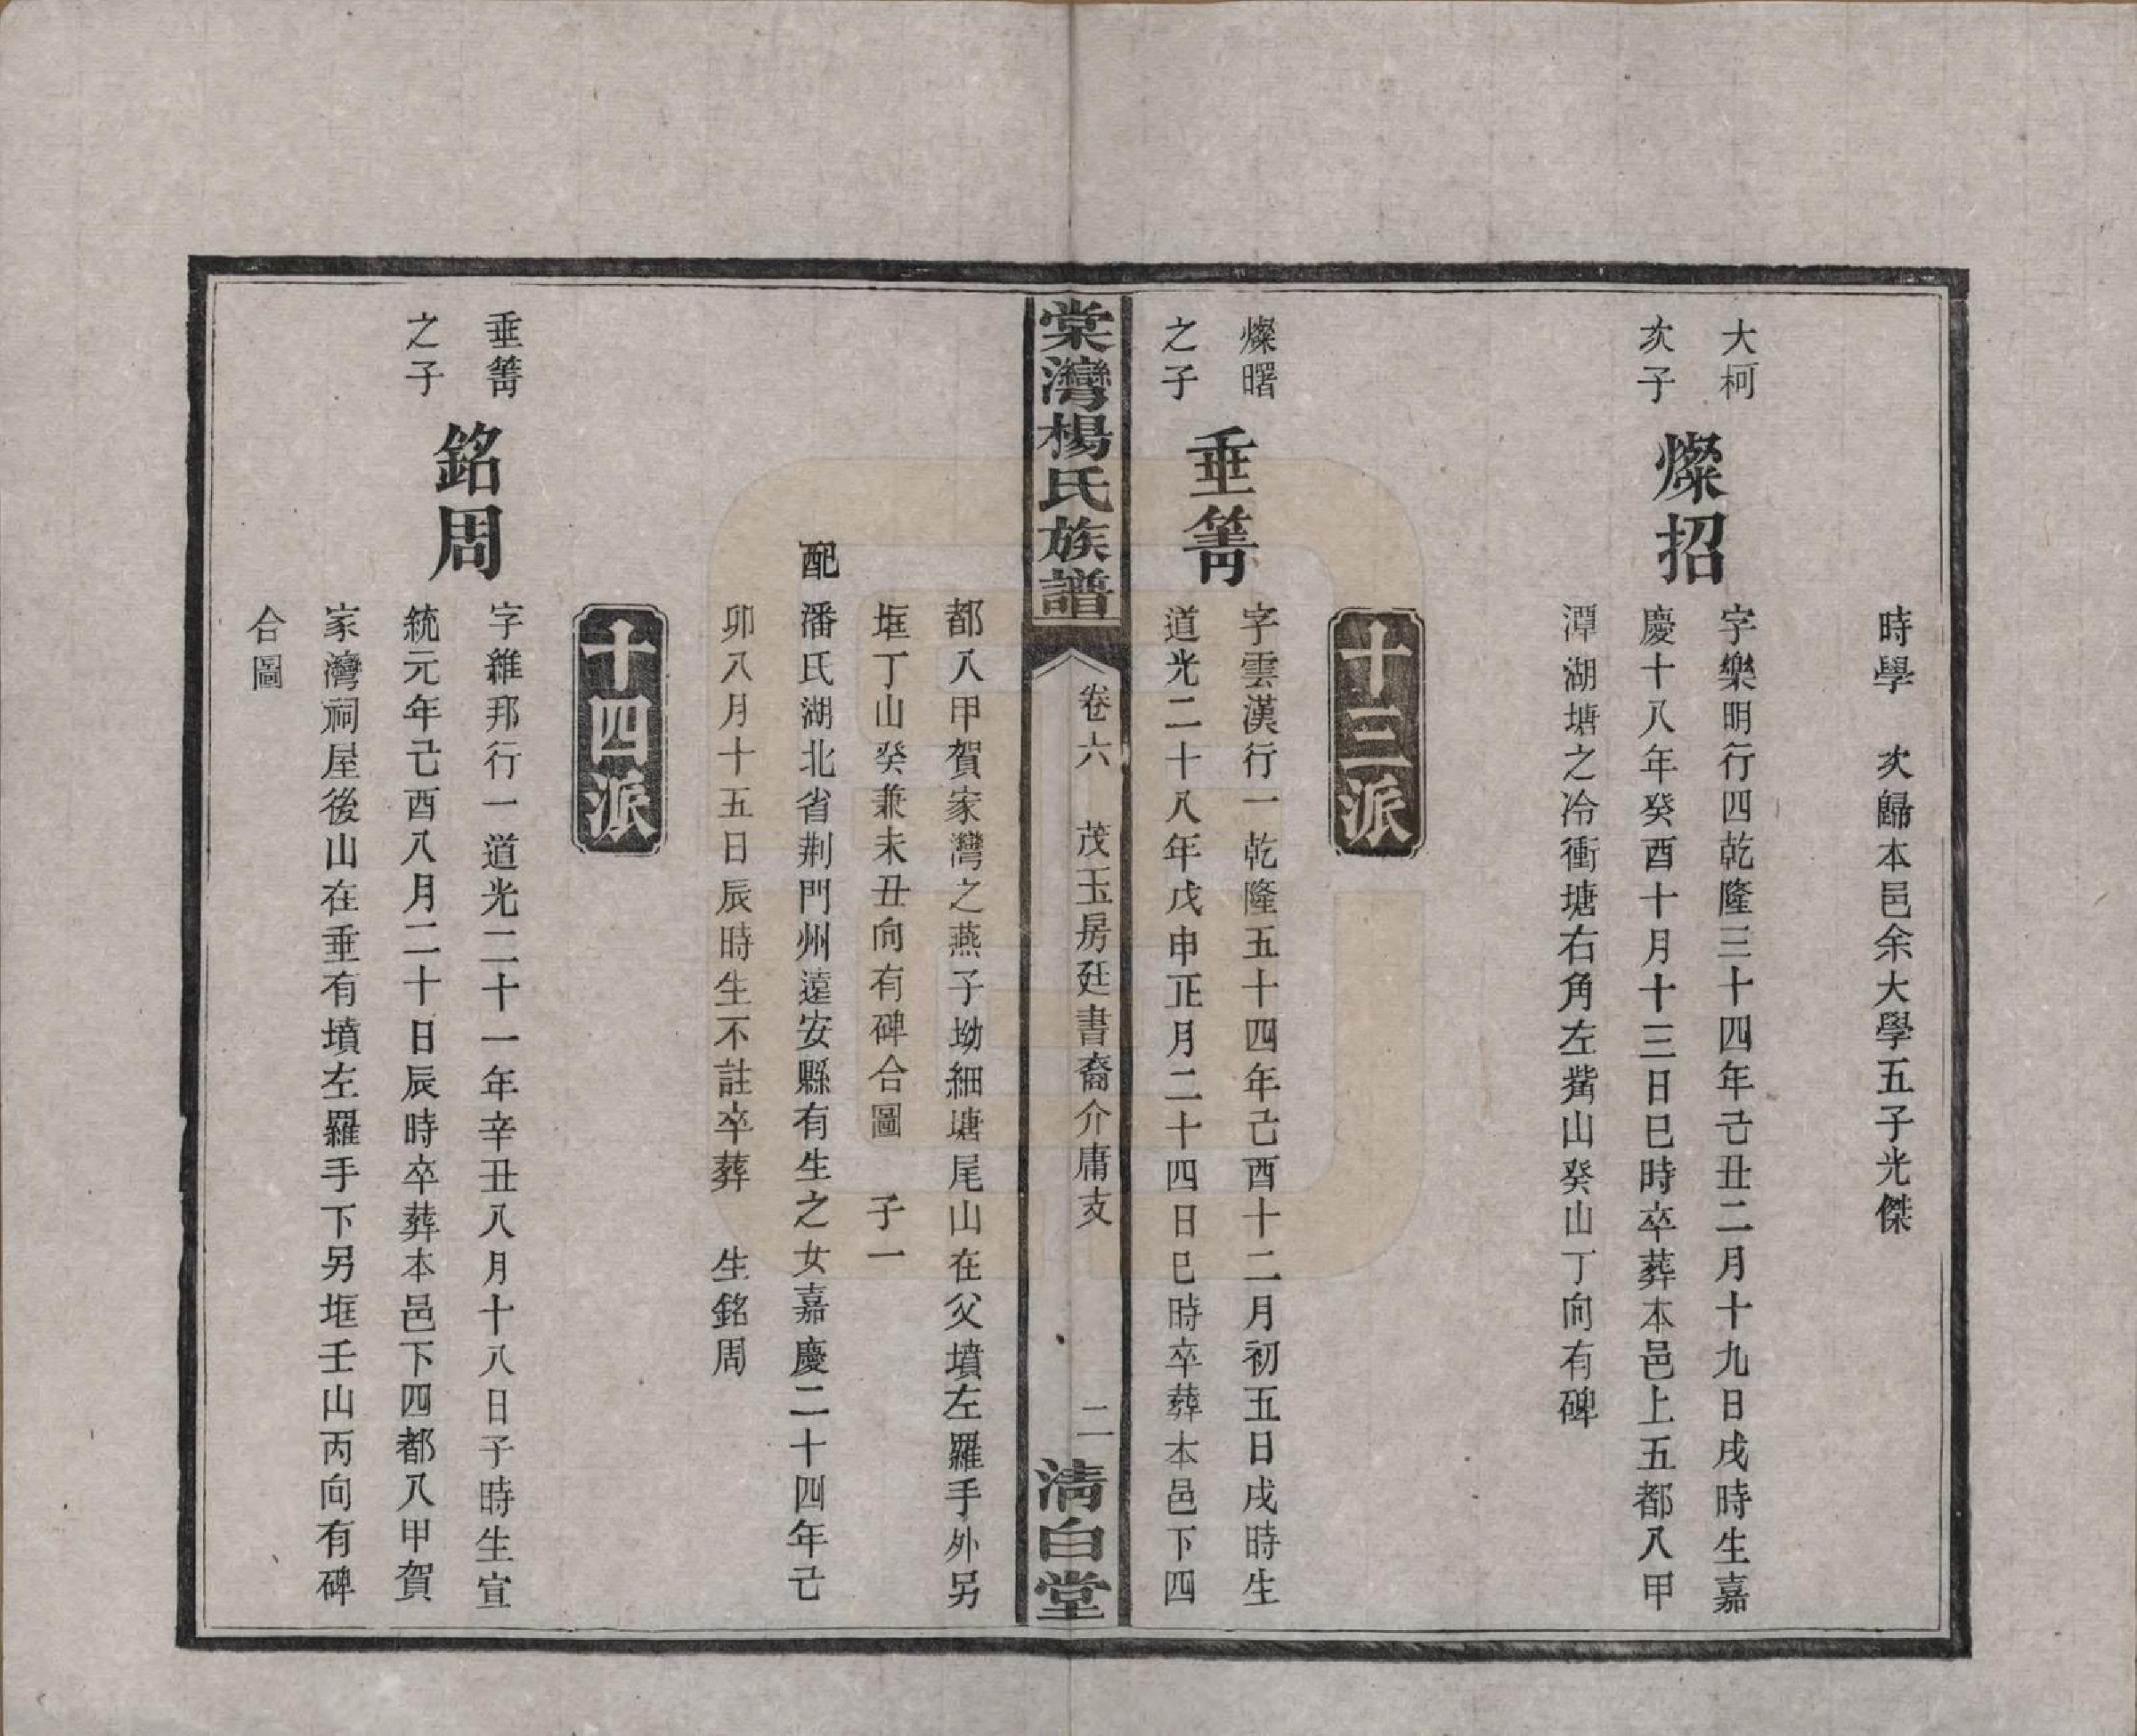 時學　次歸本邑余大學五子光傑
大柯
次子
燦招
字樂明行四乾隆三十四年己丑二月十九日戌時生嘉
慶十八年癸酉十月十三日巳時卒葬本邑上五都八甲
潭湖塘之冷衝塘右角左觜山癸山丁向有碑
十三派
燦曙
之子
垂箐
字雲漢行一乾隆五十四年己酉十二月初五日戌時生
道光二十八年戊申正月二十四日巳時卒葬本邑下四
棠灣楊氏族譜
卷六　茂玉房廷書裔介庸支
二
清白堂
都八甲賀家灣之燕子坳細塘尾山在父墳左羅手外另
堆丁山癸兼未丑向有碑合圖　子一
配
潘氏湖北省荆門州遠安縣有生之女嘉慶二十四年己
卯八月十五日辰時生不註卒葬　生銘周
十四派
垂箐
之子
銘周
字維邦行一道光二十一年辛丑八月十八日子時生宣
統元年己酉八月二十日辰時卒葬本邑下四都八甲賀
家灣祠屋後山在垂有墳左羅手下另堆壬山丙向有碑
合圖